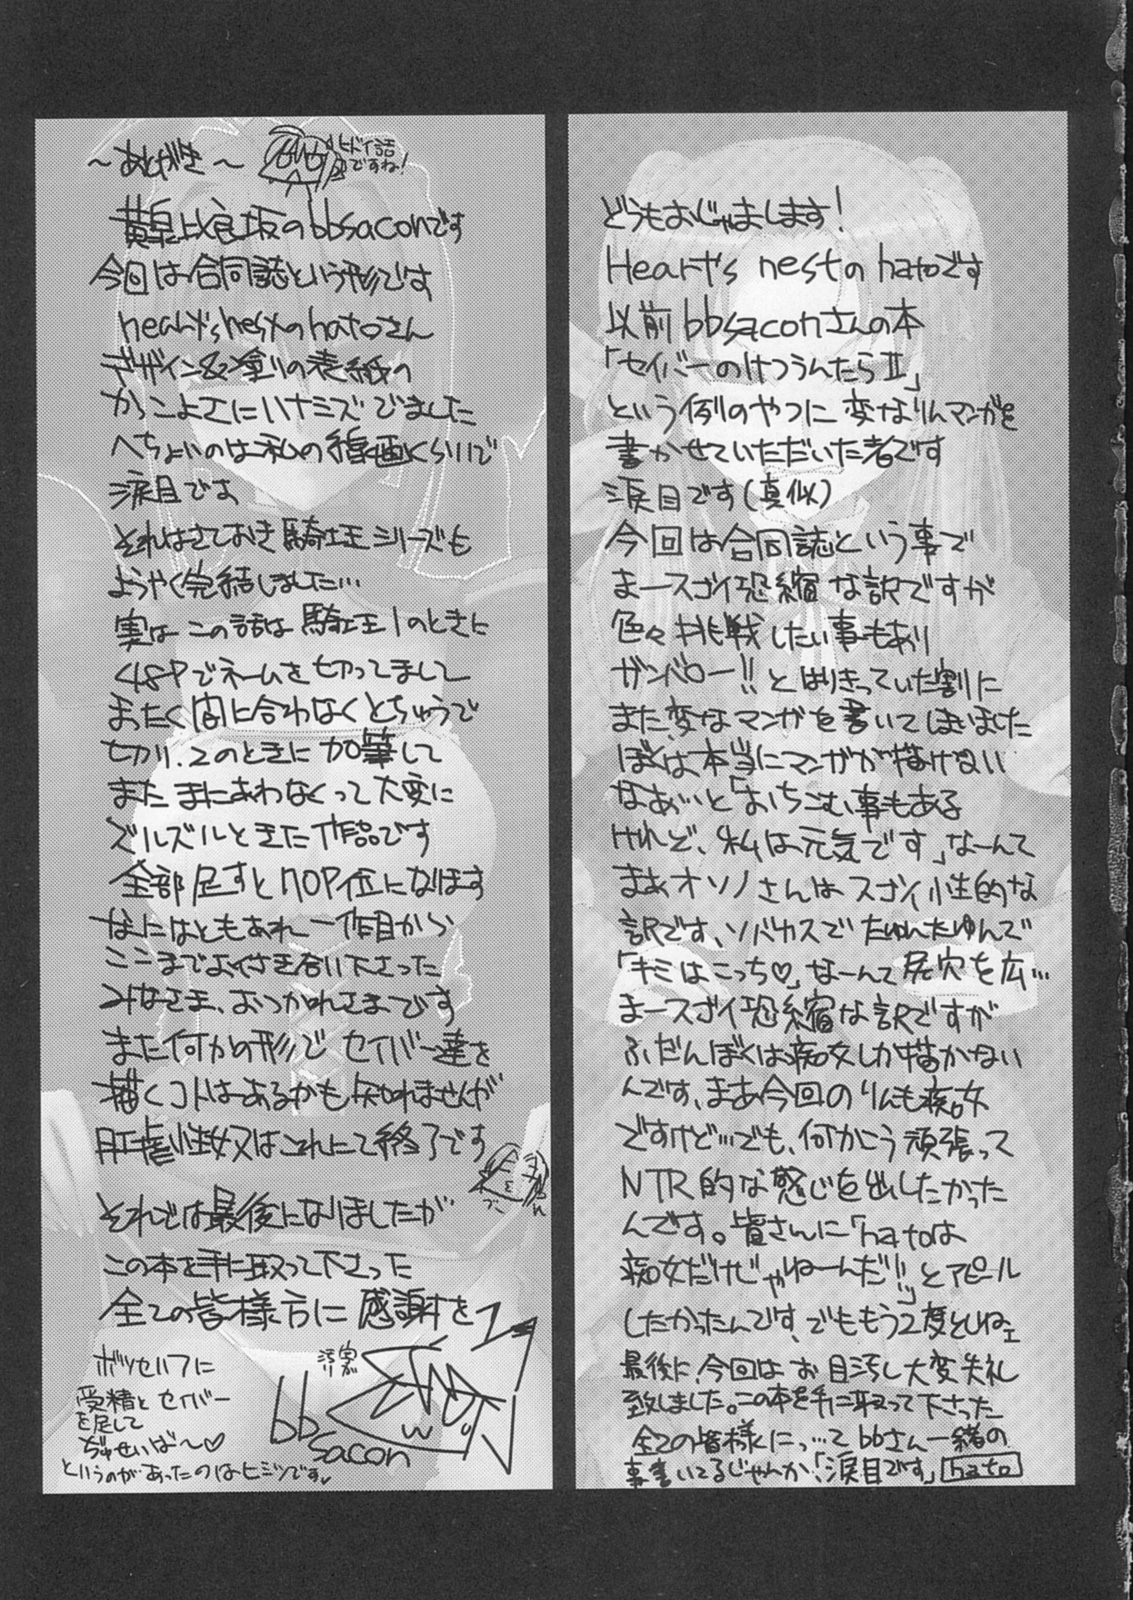 ～あとがき～
ヒドイ話
ですね！
黄泉比良坂のbbsaconです
今回は合同誌という形です
heart's nestのhatoさん
デザイン&塗りの表紙の
かっこよさにハナミズでました
へちょいのは私の線画くらいで
涙目です
それはさておき騎士王シリーズも
ようやく完結しました…
実はこの話は騎士王1のときに
48Pでネームを切ってまして
まったく間に合わなくとちゅうで
切り、2のときに加筆して
またまにあわなくって大変に
ズルズルときた作品です
全部足すと110P位になります
なにはともあれ一作目から
ここまでお付き合い下さった
みなさま、おつかれさまです
また何かの形でセイバー達を
描くコトはあるかも知れませんが
肛虐性奴はこれにて終了です
それでは最後になりましたが
この本を手に取って下さった
全ての皆様方に感謝を
bb
sacon
ボツセリフに
受精とセイバー
を足して
ぢゅせいばー～♡
というのがあったのはヒミツです
どうもおじゃまします！
Heart's nestのhatoです
以前bbsaconさんの本
「セイバーのけつうんたらII」
という例のやつに変なりんマンガを
書かせていただいた者です
涙目です(真似)
今回は合同誌という事で
まースゴイ恐縮な訳ですが
色々挑戦したい事もあり
ガンバロー!!とはりきっていた割に
また変なマンガを書いてしまいました
ぼくは本当にマンガが描けない
なぁ〜いと「おちこむ事もある
けれど、私は元気です」なーんて
まぁオソノさんはスゴイ性的な
訳です、ソバカスでたゆんたゆんで
「キミはこっち♡」なーんて尻穴を広…
まースゴイ恐縮な訳ですが
ふだんぼくは痴女しか描かない
んです、まあ今回のりんも痴女
ですけど…でも、何かこう頑張って
NTR的な感じを出したかった
んです。皆さんに「hatoは
痴女だけじゃねーんだ!!」とアピール
したかったんです、でももう2度としねェ
最後に、今回はお目汚し大変失礼
致しました。この本を手に取って下さった
全ての皆様に…ってbbさん一緒の
事書いてるじゃんか、「涙目です」hato